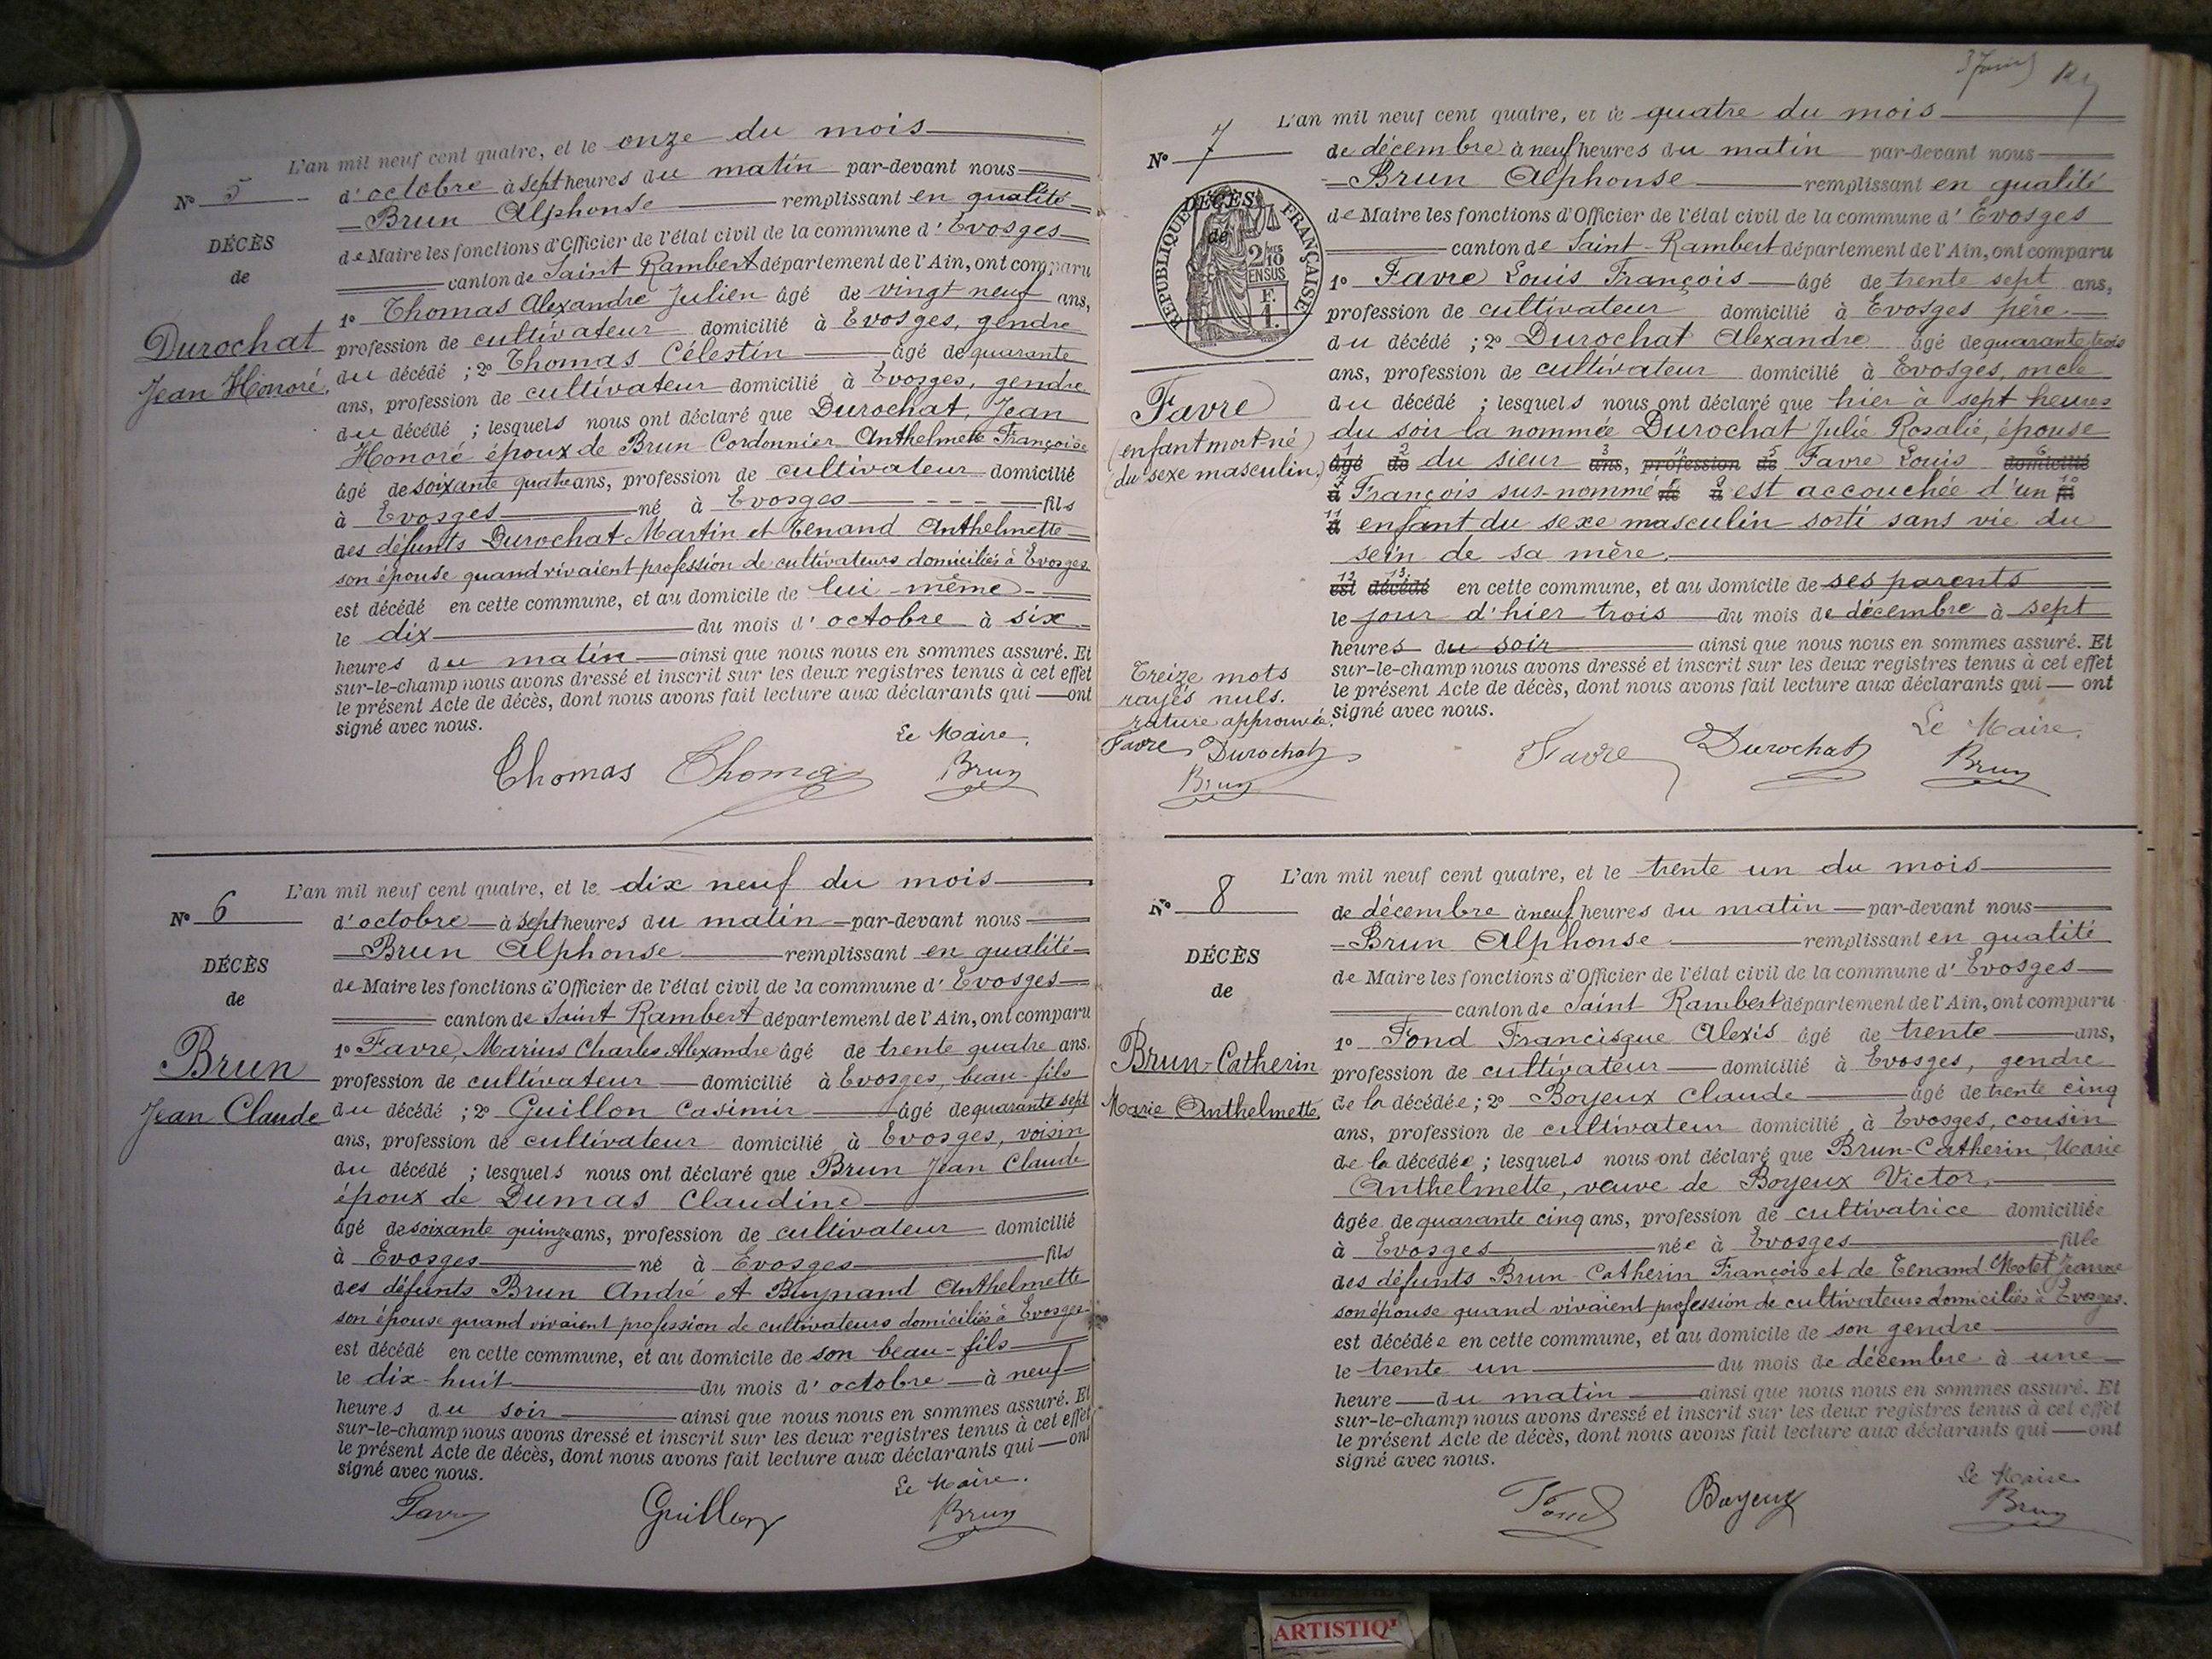 L'an mil neuf cent quatre, et le onze du mois
N° 5
d'octobre à sept heures du matin par-devant nous
Brun Alphonse remplissant en qualité
DÉCÈS
de Maire les fonctions d'Officier de l'état civil de la commune d'Evosges
de
canton de Saint Rambert département de l'Ain, ont comparu
1° Thomas Alexandre Julien âgé de vingt neuf ans,
Durochat
profession de cultivateur domicilié à Evosges, gendre
du décédé ; 2° Thomas Célestin âgé de quarante
Jean Honoré.
ans, profession de cultivateur domicilié à Evosges, gendre
du décédé ; lesquels nous ont déclaré que Durochat, Jean
Honoré époux de Brun-Cordonnier Anthelmette Françoise
âgé de soixante quatre ans, profession de cultivateur domicilié
à Evosges né à Evosges fils
des défunts Durochat Martin et Tenand Anthelmette
son épouse quand vivaient profession de cultivateurs domiciliés à Evosges
est décédé en cette commune, et au domicile de lui-même
le dix du mois d'octobre à six
heures du matin ainsi que nous nous en sommes assuré. Et
sur-le-champ nous avons dressé et inscrit sur les deux registres tenus à cet effet
le présent Acte de décès, dont nous avons fait lecture aux déclarants qui ont
signé avec nous.
Le Maire,
Thomas Thomas Brun
L'an mil neuf cent quatre, et le dix neuf du mois
N° 6
d'octobre à sept heures du matin par-devant nous
Brun Alphonse remplissant en qualité
DÉCÈS
de Maire les fonctions d'Officier de l'état civil de la commune d'Evosges
de
canton de Saint Rambert département de l'Ain, ont comparu
1° Favre, Marius Charles Alexandre âgé de trente quatre ans.
Brun
profession de cultivateur domicilié à Evosges, beau-fils
Jean Claude
du décédé ; 2° Guillon Casimir âgé de quarante sept
ans, profession de cultivateur domicilié à Evosges, voisin
du décédé ; lesquels nous ont déclaré que Brun Jean Claude
époux de Dumas Claudine
âgé de soixante quinze ans, profession de cultivateur domicilié
à Evosges né à Evosges fils
des défunts Brun André et Anthelmette
son épouse quand vivaient profession de cultivateurs domiciliés à Evosges
est décédé en cette commune, et au domicile de son beau-fils
le dix-huit du mois d'octobre à neuf
heures du soir ainsi que nous nous en sommes assuré. Et
sur-le-champ nous avons dressé et inscrit sur les deux registres tenus à cet effet
le présent Acte de décès, dont nous avons fait lecture aux déclarants qui ont
signé avec nous.
Le Maire.
Favre Guillon Brun
L'an mil neuf cent quatre, et le quatre du mois
N° 7
de décembre à neuf heures du matin par-devant nous
Brun Alphonse remplissant en qualité
DÉCÈS
de
RÉPUBLIQUE FRANÇAISE
2 MES 2/10 EN SUS
F. 1.
de Maire les fonctions d'Officier de l'état civil de la commune d'Evosges
canton de Saint-Rambert département de l'Ain, ont comparu
1° Favre Louis François âgé de trente sept ans,
profession de cultivateur domicilié à Evosges père
du décédé ; 2° Durochat Alexandre âgé de quarante trois
ans, profession de cultivateur domicilié à Evosges, oncle
Favre
(enfant mort-né)
(du sexe masculin.)
du décédé ; lesquels nous ont déclaré que hier à sept heures
du soir la nommée Durochat Julie Rosalie, épouse
âgé de du sieur ans, profession de Favre Louis domicilié
à François sus-nommé né à est accouchée d'un fil
à enfant du sexe masculin sorti sans vie du
sein de sa mère.
est décédé en cette commune, et au domicile de ses parents
le jour d'hier trois du mois de décembre à sept
heures du soir ainsi que nous nous en sommes assuré. Et
sur-le-champ nous avons dressé et inscrit sur les deux registres tenus à cet effet
le présent Acte de décès, dont nous avons fait lecture aux déclarants qui ont
signé avec nous.
Treize mots
rayés nuls.
rature approuvée.
Favre Durochat
Brun
Le Maire,
Favre Durochat Brun
L'an mil neuf cent quatre, et le trente un du mois
N° 8
de décembre à neuf heures du matin par-devant nous
Brun Alphonse remplissant en qualité
DÉCÈS
de Maire les fonctions d'Officier de l'état civil de la commune d'Evosges
de
canton de Saint Rambert département de l'Ain, ont comparu
1° Fond Francisque Alexis âgé de trente ans,
Brun-Catherin
profession de cultivateur domicilié à Evosges, gendre
Marie Anthelmette.
de la décédée ; 2° Boyeux Claude âgé de trente cinq
ans, profession de cultivateur domicilié à Evosges, cousin
de la décédée ; lesquels nous ont déclaré que Brun-Catherin, Marie
Anthelmette, veuve de Boyeux Victor,
âgée de quarante cinq ans, profession de cultivatrice domiciliée
à Evosges née à Evosges fille
des défunts Brun-Catherin François et de Tenand Jeanne
son épouse quand vivaient profession de cultivateurs domiciliés à Evosges.
est décédée en cette commune, et au domicile de son gendre
le trente un du mois de décembre à une
heure du matin ainsi que nous nous en sommes assuré. Et
sur-le-champ nous avons dressé et inscrit sur les deux registres tenus à cet effet
le présent Acte de décès, dont nous avons fait lecture aux déclarants qui ont
signé avec nous.
Le Maire
Fond Boyeux Brun
ARTISTIQ